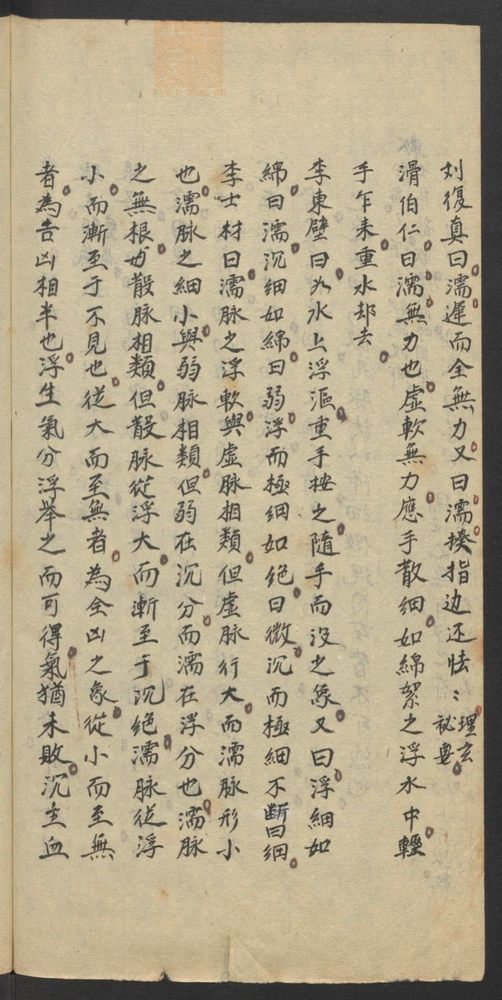 刘復真曰濡遲而全無力又曰濡揍指边还怯〻理玄秘要
滑伯仁曰濡無力也虛軟無力應手散細如綿絮之浮水中輕
手乍来重水却去
李東壁曰如水上浮漚重手按之隨手而没之象又曰浮細如
綿曰濡沉细如綿曰弱浮而極细如绝曰微沉而極细不断曰细
李士材曰濡脉之浮軟與虛脉相類但虛脉行大而濡脉形小
也濡脉之细小與弱脉相類但弱在沉分而濡在浮分也濡脉
之無根与散脉相類但散脉從浮大而漸至于沉绝濡脉從浮
小而漸至于不見也從大而至無者為全凶之象從小而至無
者為吉凶相半也浮生氣分浮举之而可得氣猶未敗沉主血